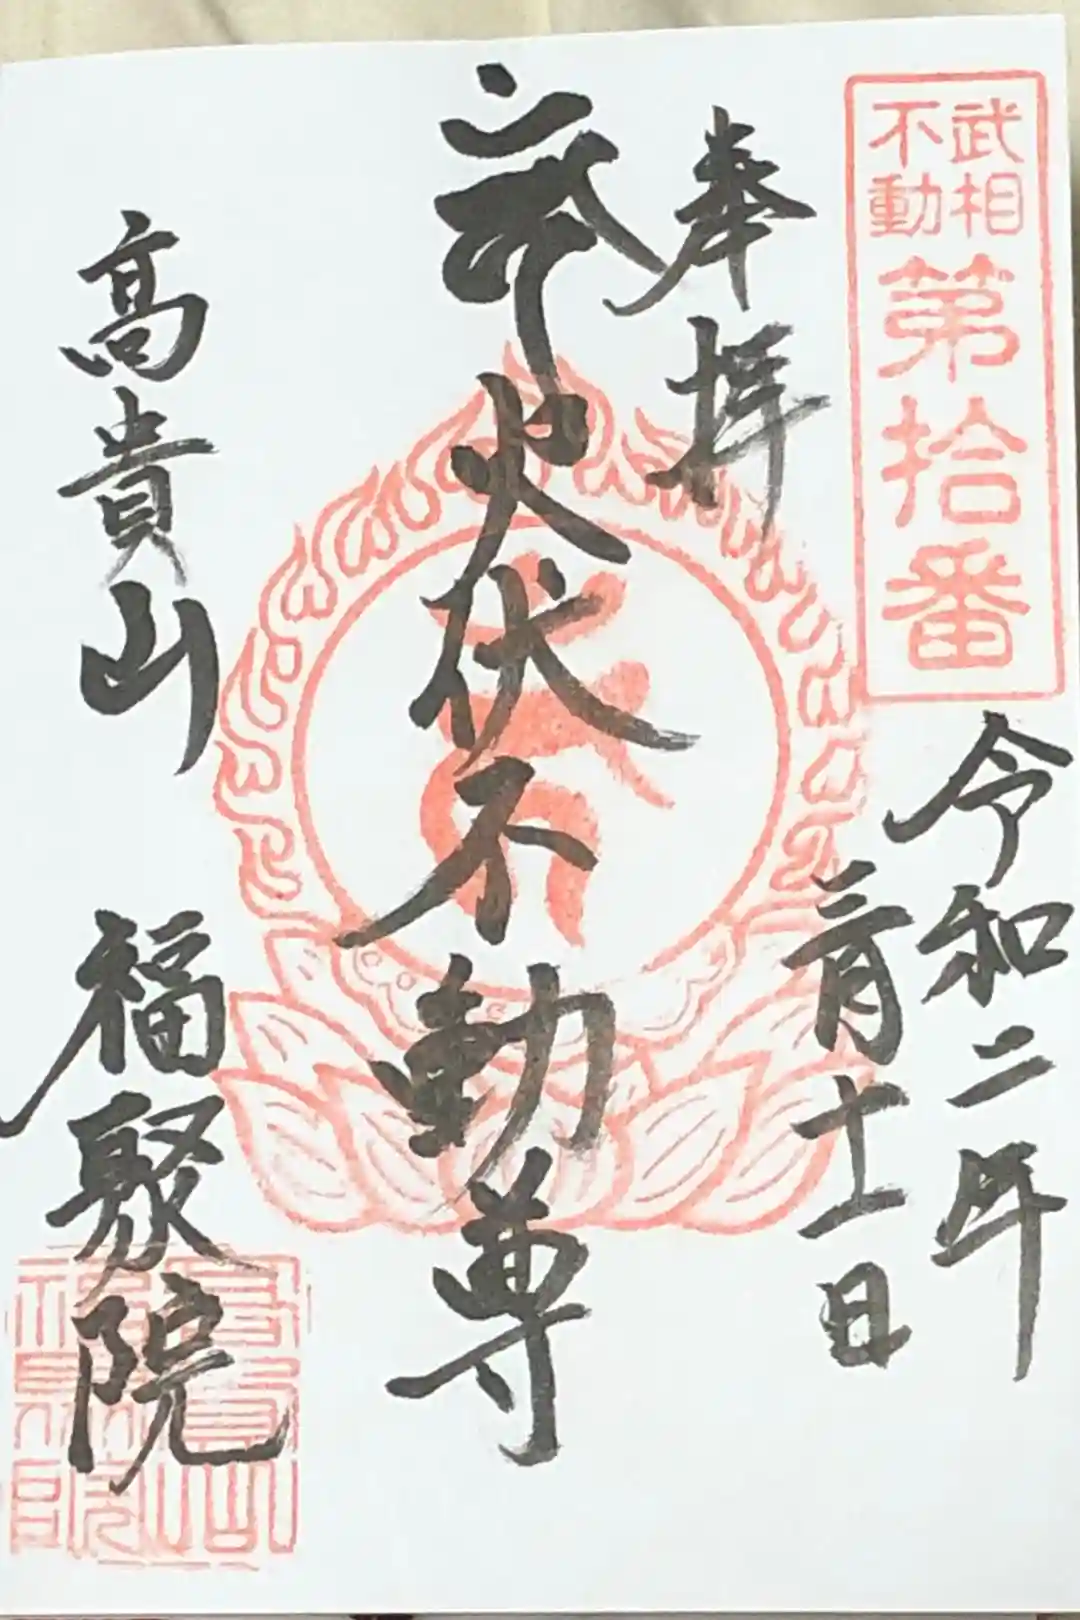 武相
不動
第拾番
奉拝
令和二年
月十一日
火伏不動尊
高貴山
福聚院
高貴山
福聚院